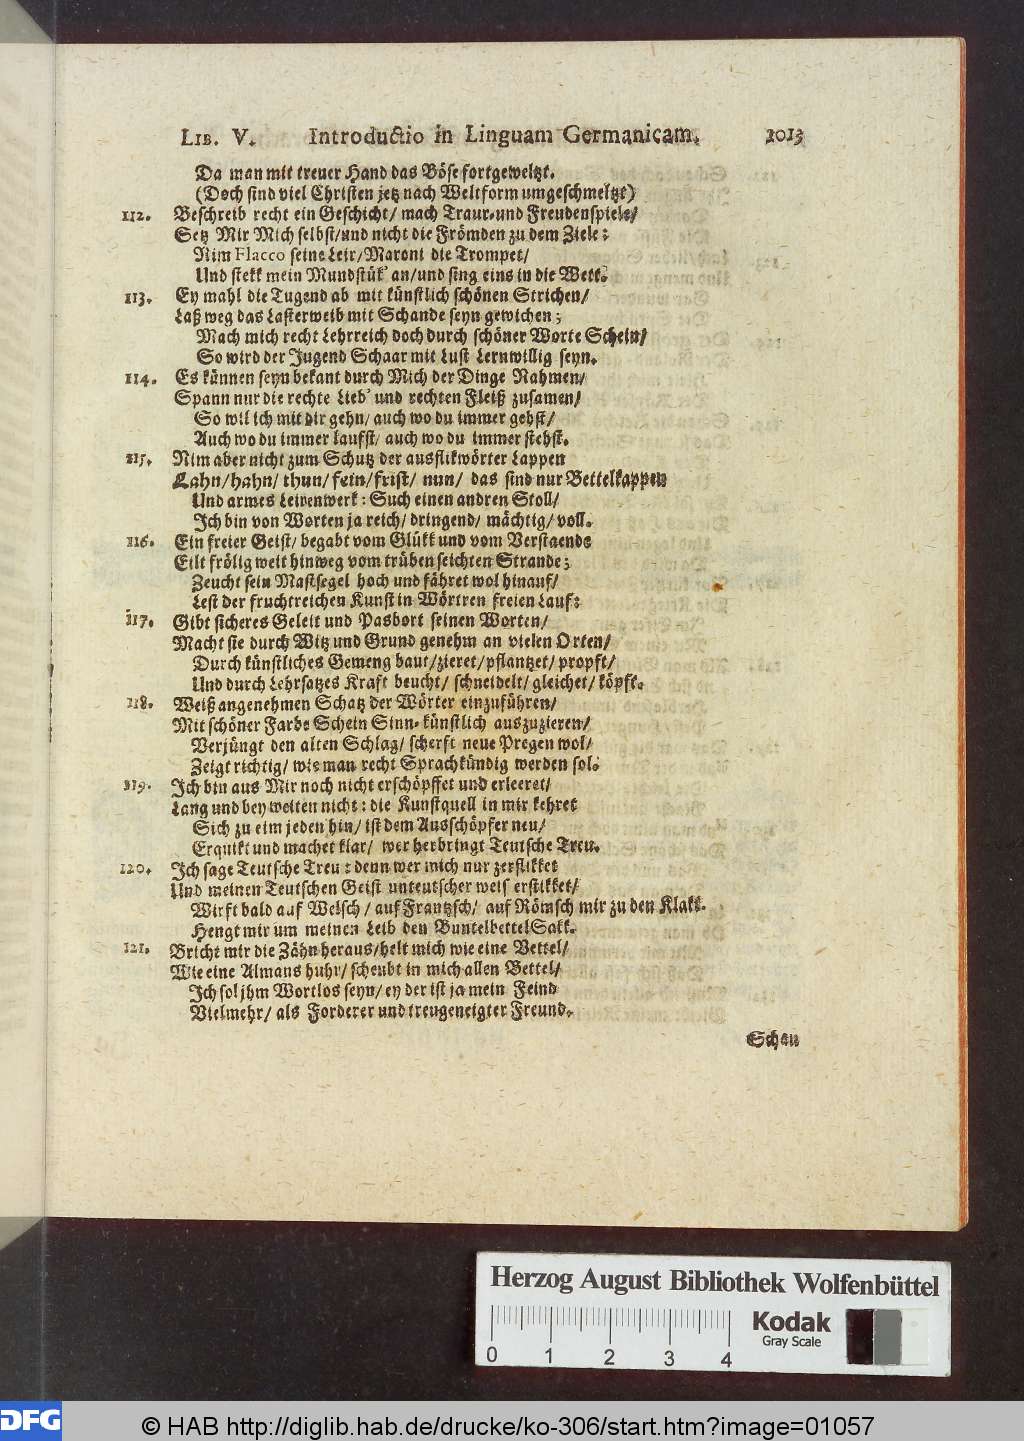 LIB. V. Introductio in Linguam Germanicam. 1013
Da man mit treuer Hand das Böse fortgeweltzt.
(Doch sind viel Christen jetz nach Weltform umgeschmeltzt)
112. Beschreib recht ein Geschicht/ mach Traur-und Freudenspiele/
Setz Mir Mich selbst/und nicht die Frömden zu dem Ziele:
Nim Flacco seine Leir/Maroni die Trompet/
Und stekk mein Mundstük' an/und sing eins in die Wett.
113. Ey mahl die Tugend ab mit künstlich schönen Strichen/
Laß weg das Lasterweib mit Schande seyn gewichen;
Mach mich recht Lehrreich doch durch schöner Worte Schein/
So wird der Jugend Schaar mit Lust Lernwillig seyn.
114. Es künnen seyn bekant durch Mich der Dinge Nahmen/
Spann nur die rechte Lieb' und rechten Fleiß zusamen/
So wil ich mit dir gehn/ auch wo du immer gehst/
Auch wo du immer laufst/ auch wo du immer stehst.
115. Nim aber nicht zum Schutz der ausflikwörter Lappen
Lahn/hahn/ thun/ fein/frist/ nun/ das sind nur Bettelkappen
Und armes Leirenwerk: Such einen andren Stoll/
Ich bin von Worten ja reich/ dringend/ mächtig/ voll.
116. Ein freier Geist/ begabt vom Glükk und vom Verstaende
Eilt frölig weit hinweg vom trüben seichten Strande;
Zeucht sein Mastsegel hoch und fähret wol hinauf/
Lest der fruchtreichen Kunst in Wörtren freien Lauf:
117. Gibt sicheres Geleit und Pasbort seinen Worten/
Macht sie durch Witz und Grund genehm an vielen Orten/
Durch künstliches Gemeng baut/zieret/pflantzet/ propft/
Und durch Lehrsatzes Kraft beucht/ schneidelt/ gleichet/ köpft.
118. Weiß angenehmen Schatz der Wörter einzuführen/
Mit schöner Farbe Schein Sinn-künstlich auszuzieren/
Verjüngt den alten Schlag/ scherft neue Pregen wol/
Zeigt richtig/ wie man recht Sprachkündig werden sol.
119. Ich bin aus Mir noch nicht erschöpffet und erleeret/
Lang und bey weiten nicht: die Kunstquell in mir kehret
Sich zu eim jeden hin/ ist dem Ausschöpfer neu/
Erquikt und machet klar/ wer herbringt Teutsche Treu.
120. Ich sage Teutsche Treu: denn wer mich nur zerflikket
Und meinen Teutschen Geist unteutscher weis' erstikket/
Wirft bald auf Welsch/ auf Frantzsch/ auf Römsch mir zu den Klakk.
Hengt mir um meinen Leib den BuntelbettelSakk.
121. Bricht mir die Zähn heraus/helt mich wie eine Vettel/
Wie eine Almans huhr/ scheubt in mich allen Bettel/
Ich sol jhm Wortlos seyn/ ey der ist ja mein Feind
Vielmehr/ als Forderer und treugeneigter Freund.
Schau
Herzog August Bibliothek Wolfenbüttel
Kodak
Gray Scale
0 1 2 3 4
DFG
© HAB http://diglib.hab.de/drucke/ko-306/start.htm?image=01057